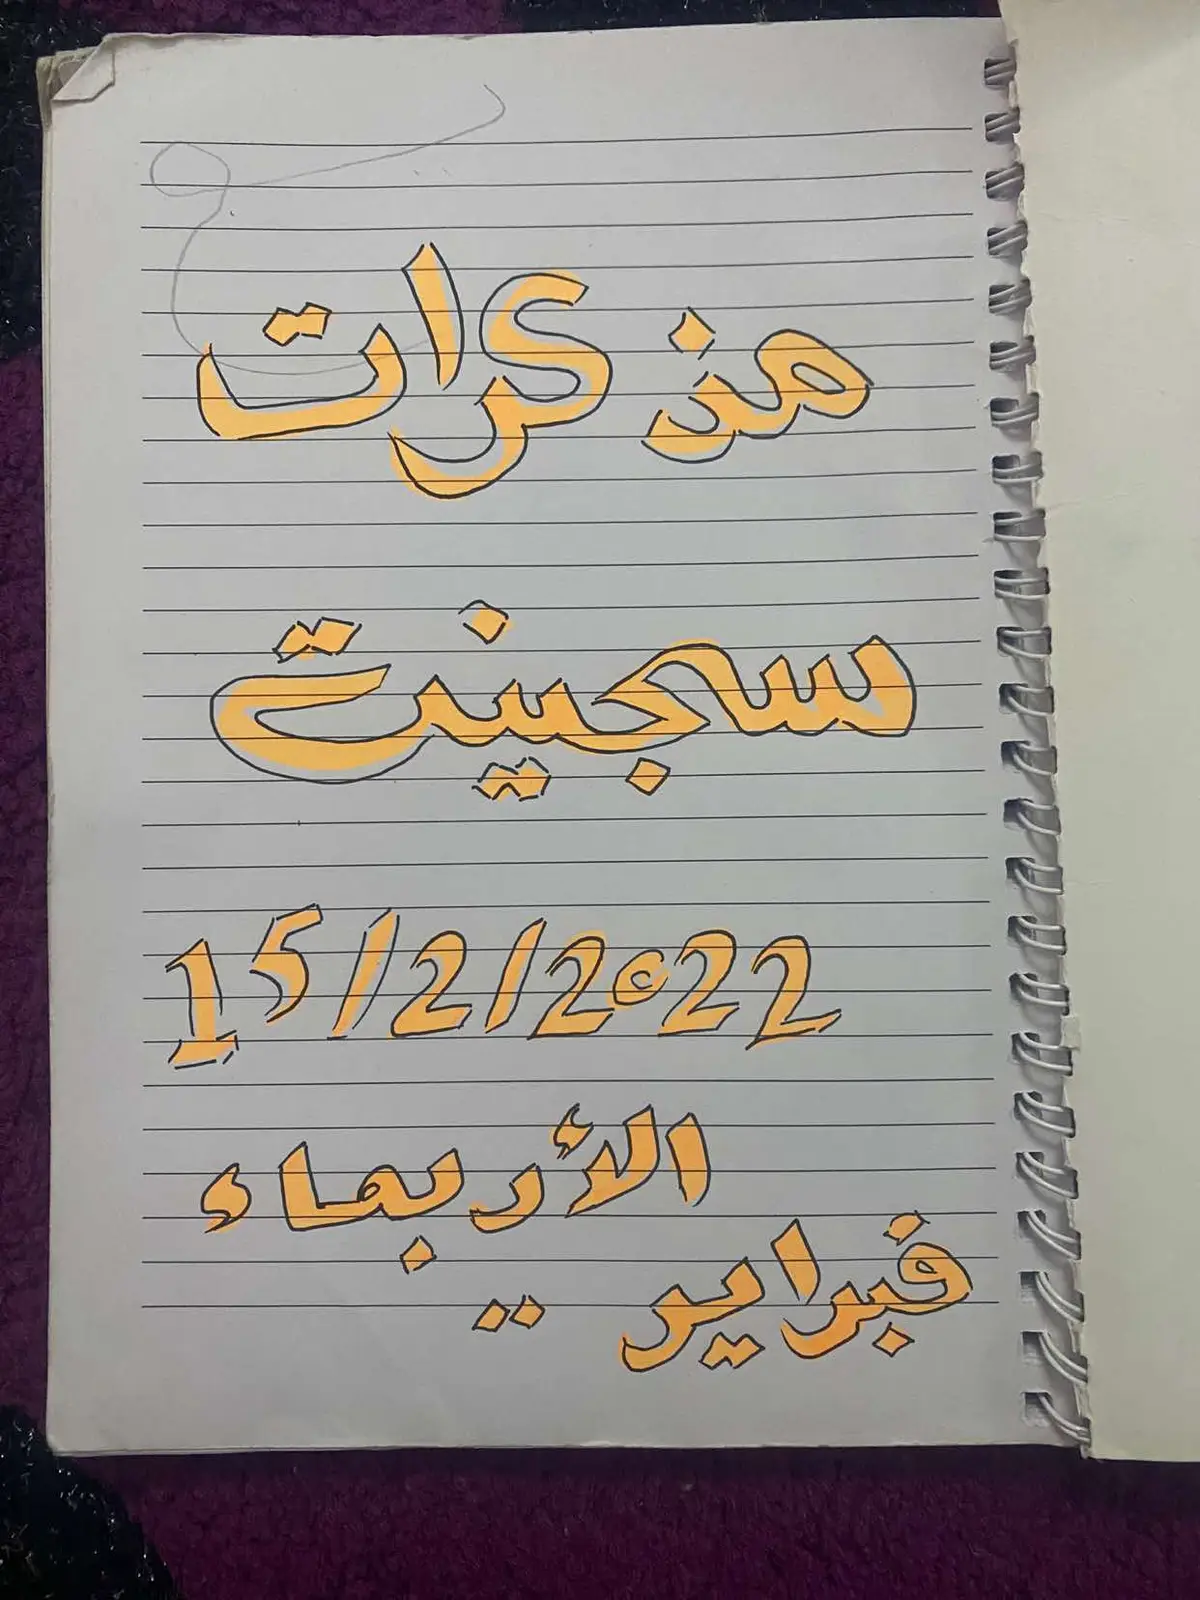 مذكرات
سجينة
15/2/2022
الأربعاء
فبراير ..